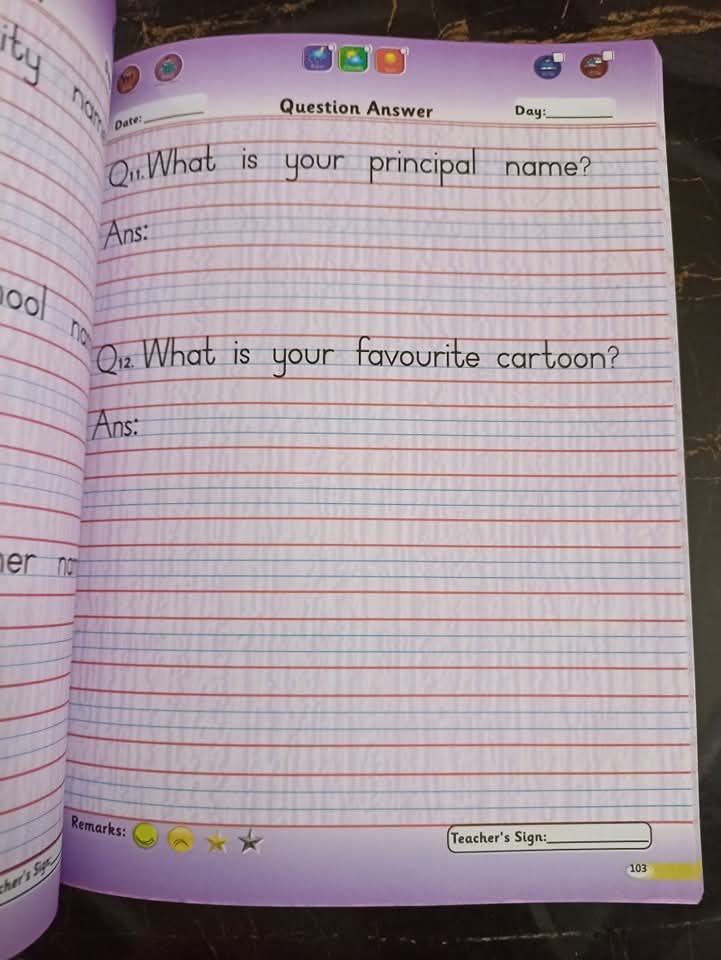 ity name
Date:
Question Answer
Day:
Q11. What is your principal name?
Ans:
ool na
Q12. What is your favourite cartoon?
Ans:
er na
Remarks:
Teacher's Sign:
cher's Sign:
103